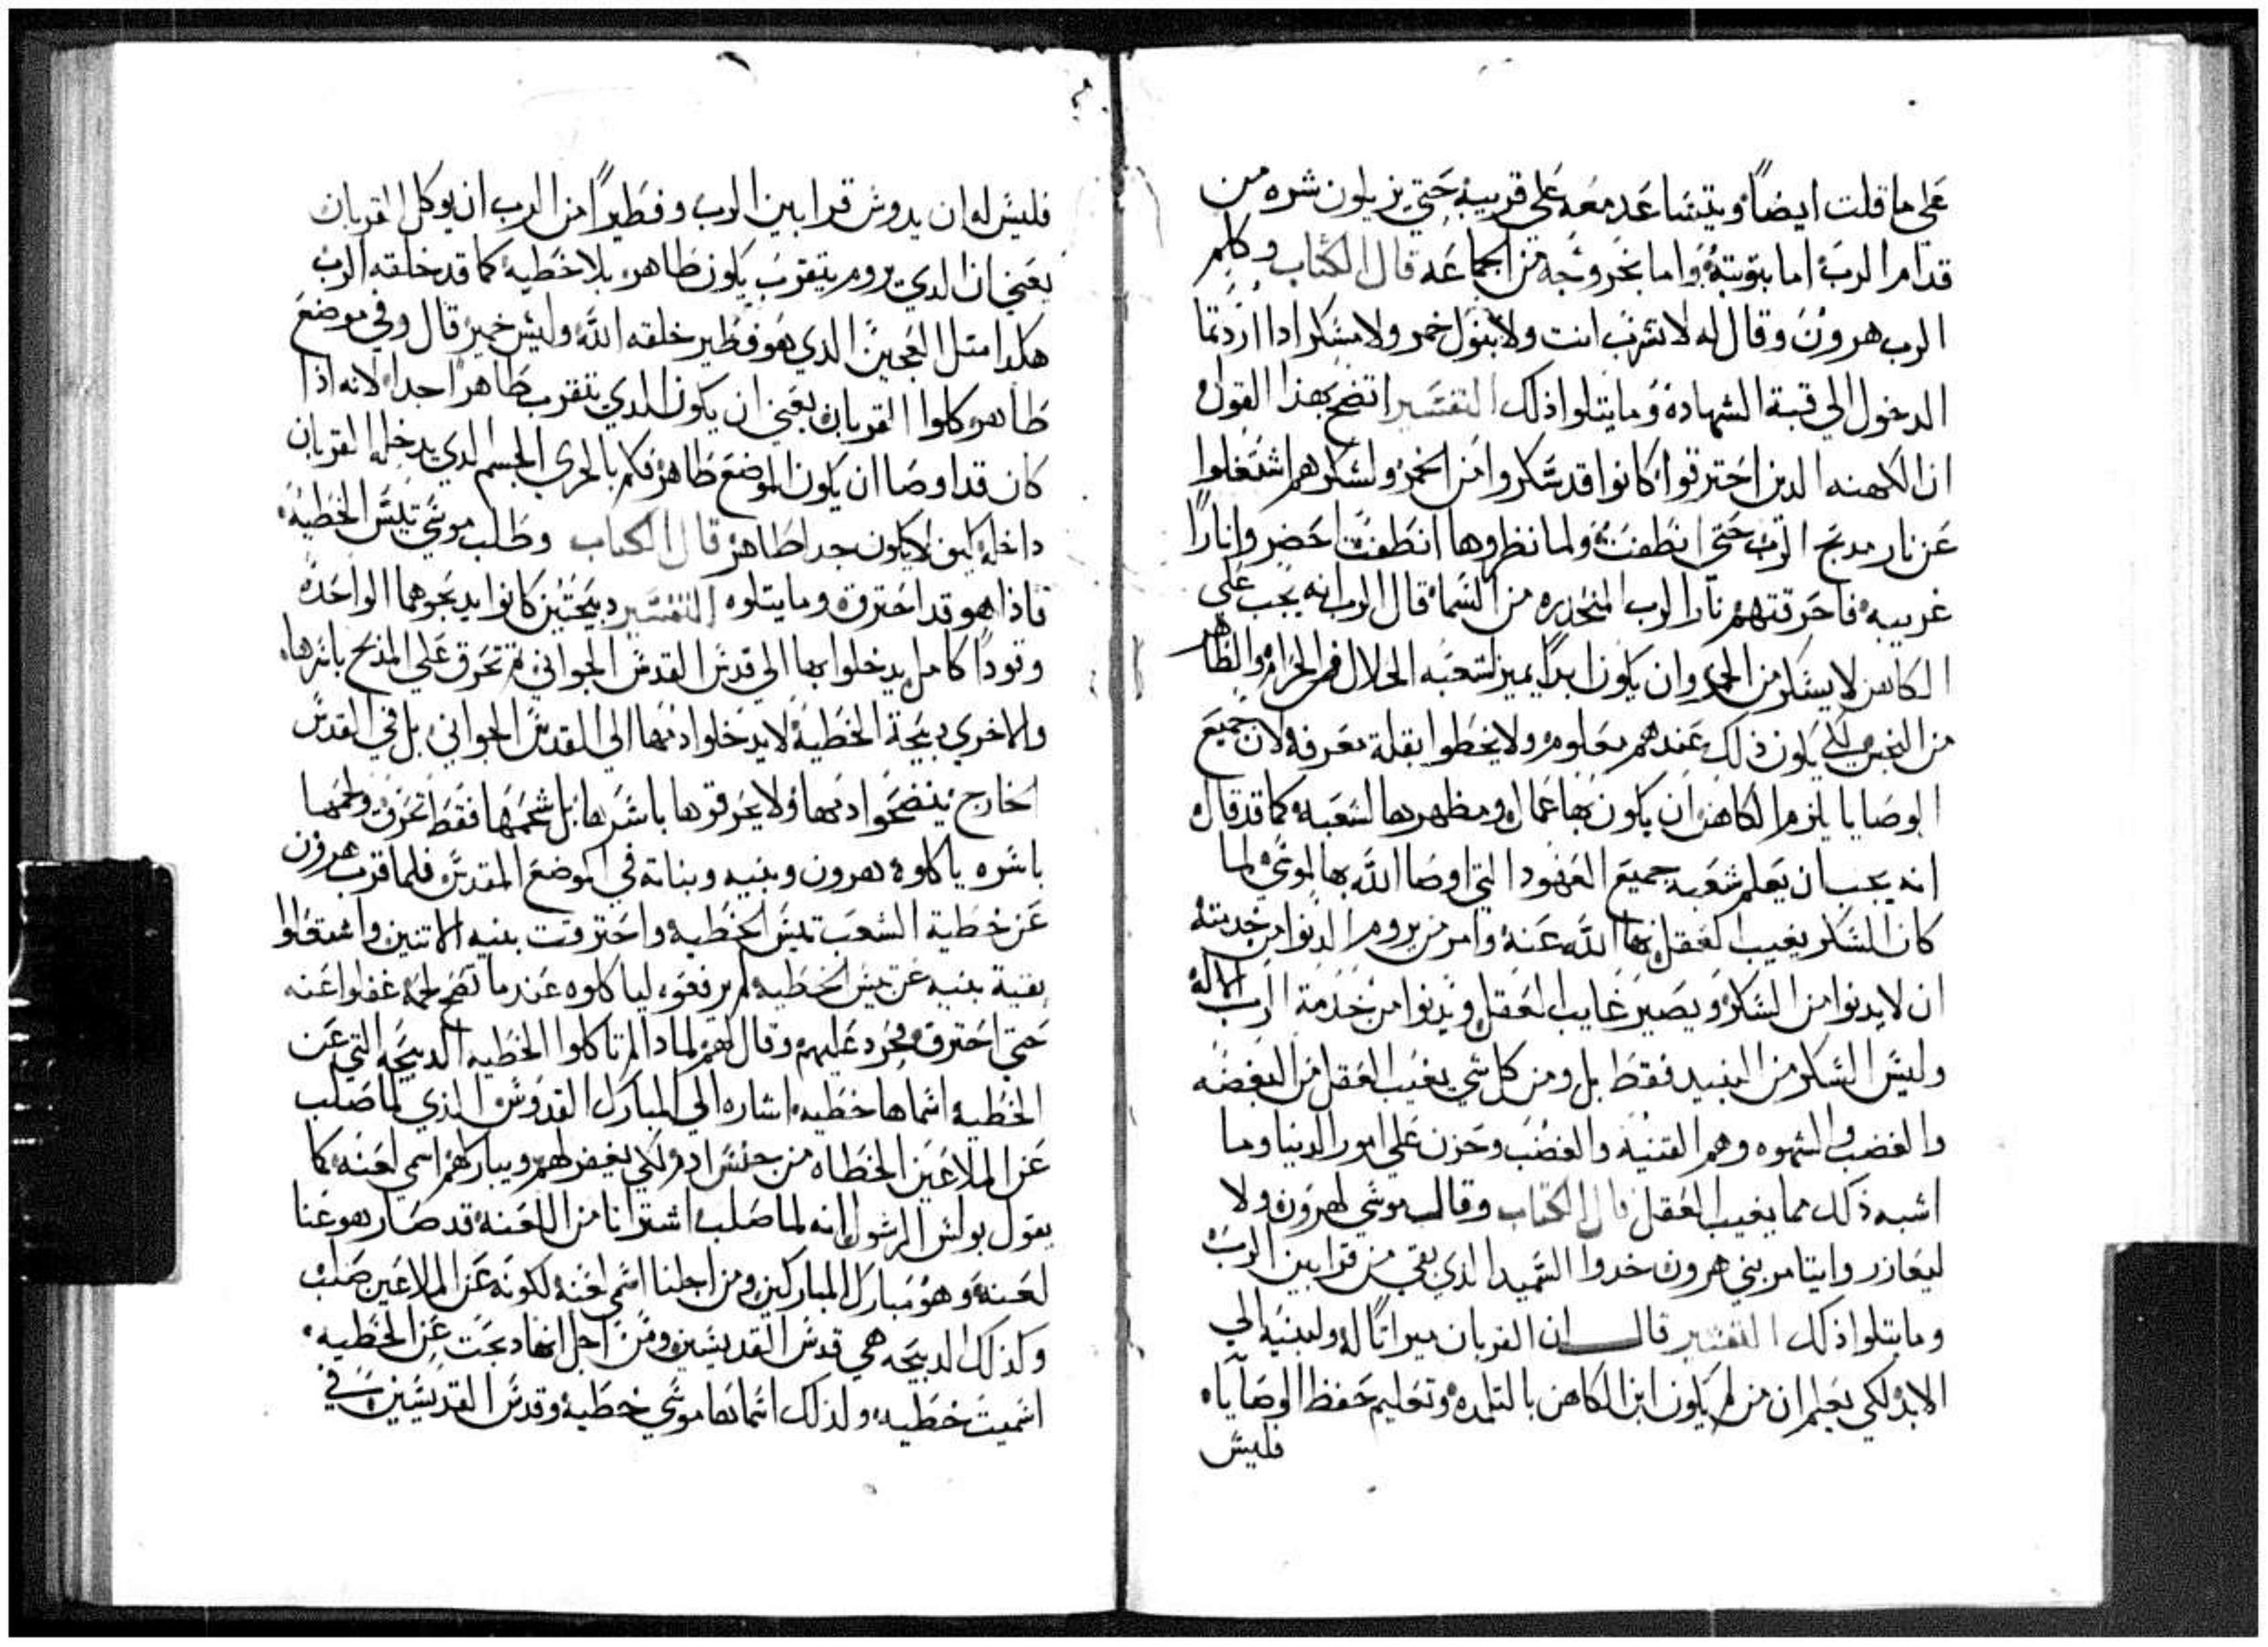 علي ما قلت ايضاً ويتشاعد معه علي قريبه حتي يزيلون شره من
قدام الرب اما بتوبته واما بخروجه من الجماعه قال الكتاب وكلم
الرب هرون وقال له لا تشرب انت ولا بنول خمر ولا مسكر ادا اردتما
الدخول الي قبة الشهاده وما يتلوا ذلك التفسير اتضح بهذا القول
ان الكهنه الدين احترقوا كانوا قد سكروا من الخمر ولسكرهم اشتغلوا
عن نار مدبح الرب حتي انطفت ولما نظروها انطفت احضروا نارًا
غريبه فاحرقتهم نار الرب المنحدره من السما قال الرب انه يجب علي
الكاهن لا يسكر من الخمر وان يكون ابداً يميز لشعبه الحلال من الحرام والطاهر
من النجس لكي يكون ذلك عندهم معلوم ولا يخطوا بقلة معرفه لان جميع
الوصايا يلزم الكاهن ان يكون بها عمال ومظهرها لشعبه كما قد قال
انه يجب ان يعلم شعبه جميع العهود التي اوصا الله بها لموسي لما
كان السكر يغيب العقل نها الله عنه وامر من يروم الدنوا من خدمته
ان لا يدنوا من السكر ويصير غايب العقل ويدنوا من خدمة الرب الاله
وليس السكر من النبيد فقط بل ومن كل شي يغيب العقل من البغضه
والغضب والشهوه وهم القنيه والغضب وحزن علي امور الدنيا وما
اشبه ذلك مما يغيب العقل قال الكتاب وقال موسي لهرون ولا
ليعازر وايتامر بني هرون خدوا السميد الذي بقي من قرابين الرب
وما يتلوا ذلك التفسير قال ان القربان ميراتاً له ولبنيه الي
الابد لكي يعلم ان من لم يكون ابن الكاهن بالتلمده وتعليم حفظ الوصاياه
فليس
فليس له ان يدوش قرابين الرب وفطيراً من الرب ان يوكل القربان
يعني ان الدي يروم يتقرب يكون طاهر بلا خطيه كما قد خلقه الرب
هكدا متل العجين الدي هو فطير خلقه الله وليس خمير قال وفي موضع
طاهر كلوا القربان يعني ان يكون الدي يتقرب طاهراً جدا لانه اذا
كان قد اوصا ان يكون الموضع طاهر فكم بالحري الجسم الدي يدخل القربان
داخله كيف لا يكون جدا طاهر قال الكتاب وطلب موسي تيس الخطيه
فاذا هو قد احترق وما يتلوه التفسير دبيحتين كانوا يدبحوهما الواحده
وقوداً كامل يدخلوا بها الي قدس القدس الجواني تم تحرق علي المدبح باسرها
والاخري دبيحة الخطية لا يدخلوا دمها الي القدس الجواني بل في القدس
الخارج ينضحوا دمها ولا يحرقوها باسرها بل شحمها فقط تحرق ولحمها
باسره ياكلوه هرون وبنيه وبناته في الموضع المقدس فلما قرب هرون
عن خطية الشعب تيس الخطيه واحترقت بنيه الاتنين واشتغلوا
بقية بنيه عن تيس الخطيه لم يرفعوه لياكلوه عند ما نضج لحمه غفلوا عنه
حتي احترق فحرد عليهم وقال لهم لمادا لم تاكلوا الخطيه الدبيحه التي عن
الخطيه اسماها خطيه اشاره الي المبارك القدوس الذي لما صلب
عن الملاعين الخطاه من جنس ادم لكي يغفر لهم ويباركهم اسمي لعنه كما
يقول بولس الرسول انه لما صلب اشترانا من اللعنه قد صار هو عنا
لعنه وهو مبارك المباركين ومن اجلنا اسمي لعنه لكونه عن الملاعين صلب
وكذلك الدبيحه هي قدس القديسين ومن اجل انها دبحت عن الخطيه
اسميت خطيه ولذلك اسماها موسي خطيه وقدس القديسين في